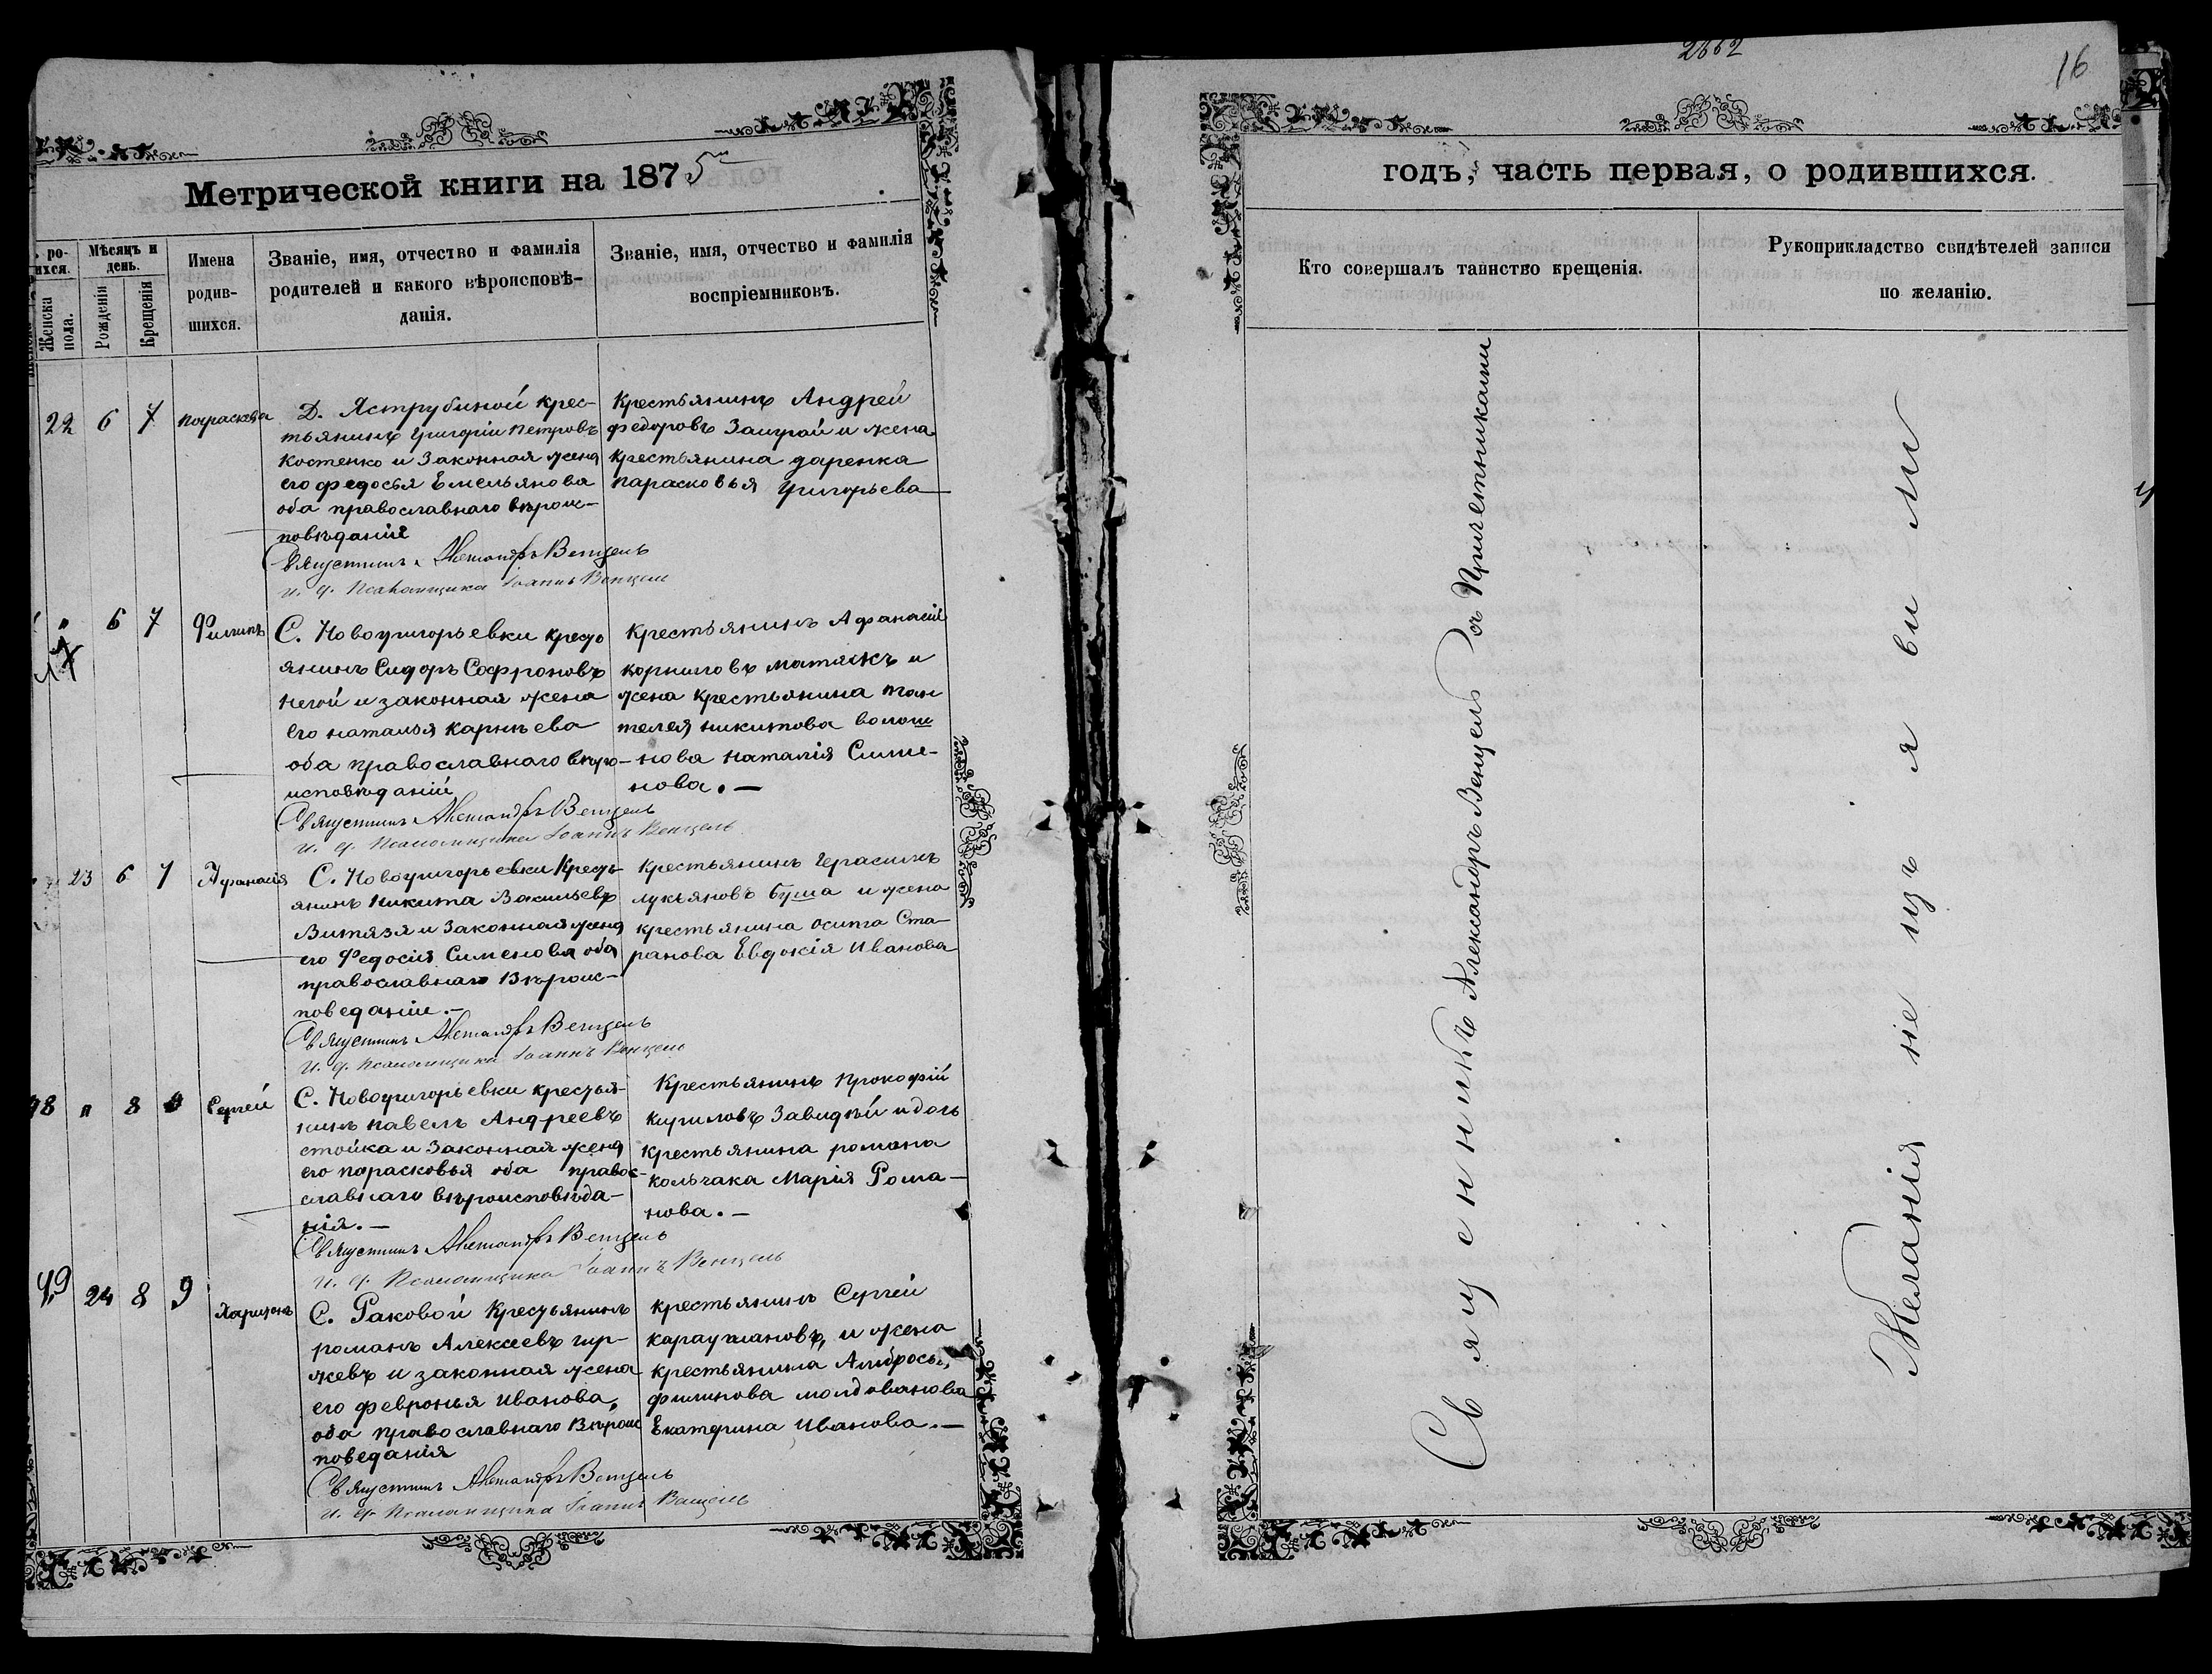 2662
16
Метрической книги на 1875
годъ, часть первая, о родившихся.
ро-
ихся.
Женска пола.
Мѣсяцъ и день.
Рожденія
Крещенія
Имена родив-
шихся.
Званіе, имя, отчество и фамилія
родителей и какого вѣроисповѣ-
данія.
Званіе, имя, отчество и фамилія
воспріемниковъ.
Кто совершалъ таинство крещенія.
Рукоприкладство свидѣтелей записи
по желанію.
22 6 7 Параскева
Д. Яструбиной крес-
тьянинъ Григорій Петровъ
Костенко и законная жена
его федосья Емельянова
оба православнаго вѣроис-
повѣданія
Священникъ Александръ Венцель
И. д. Псаломщика Іоаннъ Венцель
Крестьянинъ Андрей
федоровъ и жена
крестьянина даренка
Парасковья Григорьева
47 " 6 7 Филипъ
С. Новогригорьевки кресть
янинъ Сидоръ Софроновъ
и законная жена
его наталья
оба православнаго вѣро-
исповѣданій
Священникъ Александръ Венцель
И. д. Псаломщика Іоаннъ Венцель
Крестьянинъ Афанасій
корниловъ и
жена крестьянина пан
телея никитова волош
нова наталія Симе-
нова. —
23 6 7 Афанасія
С. Новогригорьевки Кресть
янинъ Никита Васильевъ
Витязя и законная жена
его Федосія Сименова оба
православнаго Вѣроис-
поведаніи. —
Священникъ Александръ Венцель
И. д. Псаломщика Іоаннъ Венцель
Крестьянинъ Герасимъ
лукьяновъ буша и жена
крестьянина осипа Ста-
ранова Евдокія Иванова
48 " 8 9 Сергей
С. Новогригорьевки крестья-
нинъ павелъ Андреевъ
стойка и законная жена
его парасковья оба правос-
славнаго вѣроисповѣда-
нія. —
Священникъ Александръ Венцель
И. д. Псаломщика Іоаннъ Венцель
Крестьянинъ Прокофій
кириловъ и дочь
крестьянина романа
кольчака Марія Рома-
нова. —
49 24 8 9 Харитонъ
С. Раковой Крестьянинъ
романъ Алексеевъ гир-
жевъ и законная жена
его февронья Иванова,
оба православнаго Вѣроис
поведанія
Священникъ Александръ Венцель
И. д. Псаломщика Іоаннъ Венцель
крестьянинъ Сергей
и жена
крестьянина Амбросья
филипова молдованова
Екатерина Иванова. —
Священникъ Александръ Венцель съ Причетниками
Желанія не изъявили